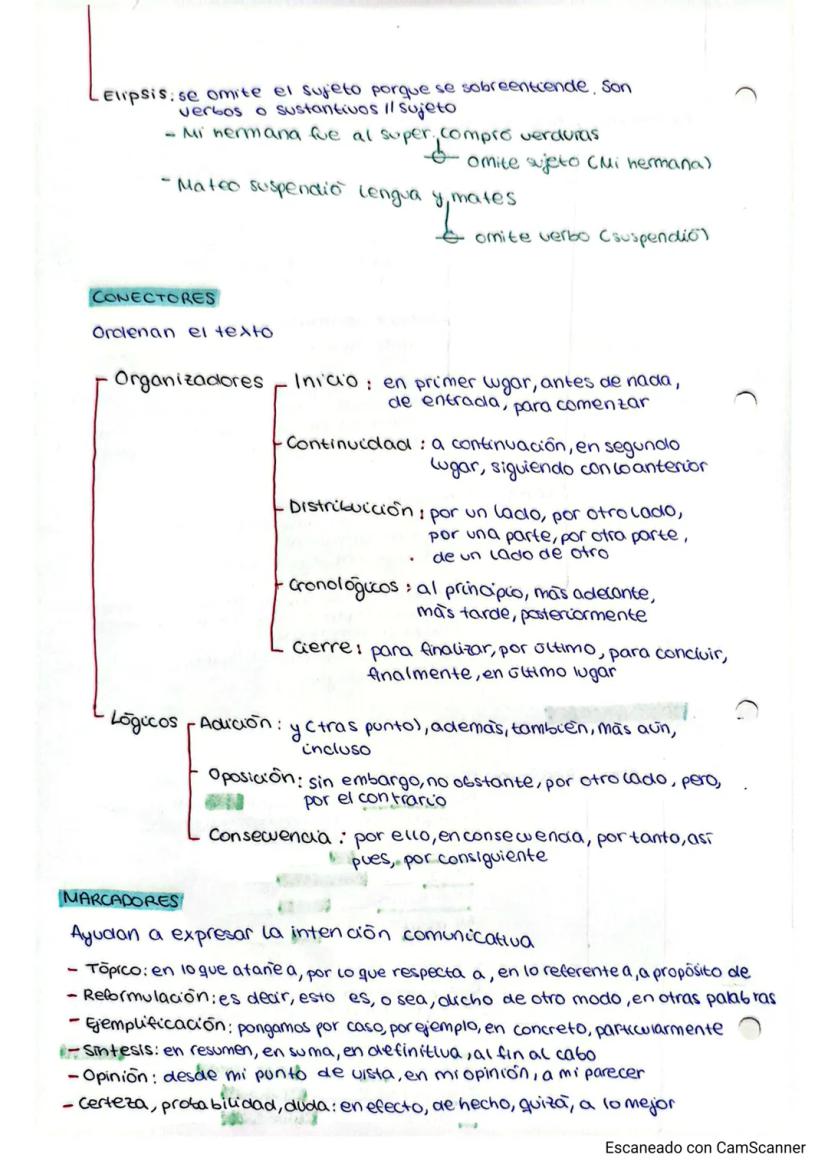 Elipsis: se omite el sujeto porque se sobreentiende. Son
verbos o sustantivos // sujeto
- Mi hermana fue al super, compró verduras
omite sujeto (Mi hermana)
- Mateo suspendió lengua y mates
omite verbo (suspendió)
CONECTORES
Ordenan el texto
Organizadores
Inicio: en primer lugar, antes de nada,
de entrada, para comenzar
Continuidad: a continuación, en segundo
lugar, siguiendo con lo anterior
Distribuición: por un lado, por otro lado,
por una parte, por otra parte,
de un lado de otro
Cronológicos: al principio, más adelante,
más tarde, posteriormente
Cierre: para finalizar, por último, para concluir,
finalmente, en último lugar
Lógicos
Adición: y (tras punto), además, también, más aún,
incluso
Oposición: sin embargo, no obstante, por otro lado, pero,
por el contrario
Consecuencia: por ello, en consecuencia, por tanto, así
pues, por consiguiente
MARCADORES
Ayudan a expresar la intención comunicativa
- Tópico: en lo que atañe a, por lo que respecta a, en lo referente a, a propósito de
- Reformulación: es decir, esto es, o sea, dicho de otro modo, en otras palabras
- Ejemplificación: pongamos por caso, por ejemplo, en concreto, particularmente
- Síntesis: en resumen, en suma, en definitiva, al fin al cabo
- Opinión: desde mi punto de vista, en mi opinión, a mi parecer
- Certeza, probabilidad, duda: en efecto, de hecho, quizá, a lo mejor
Escaneado con CamScanner